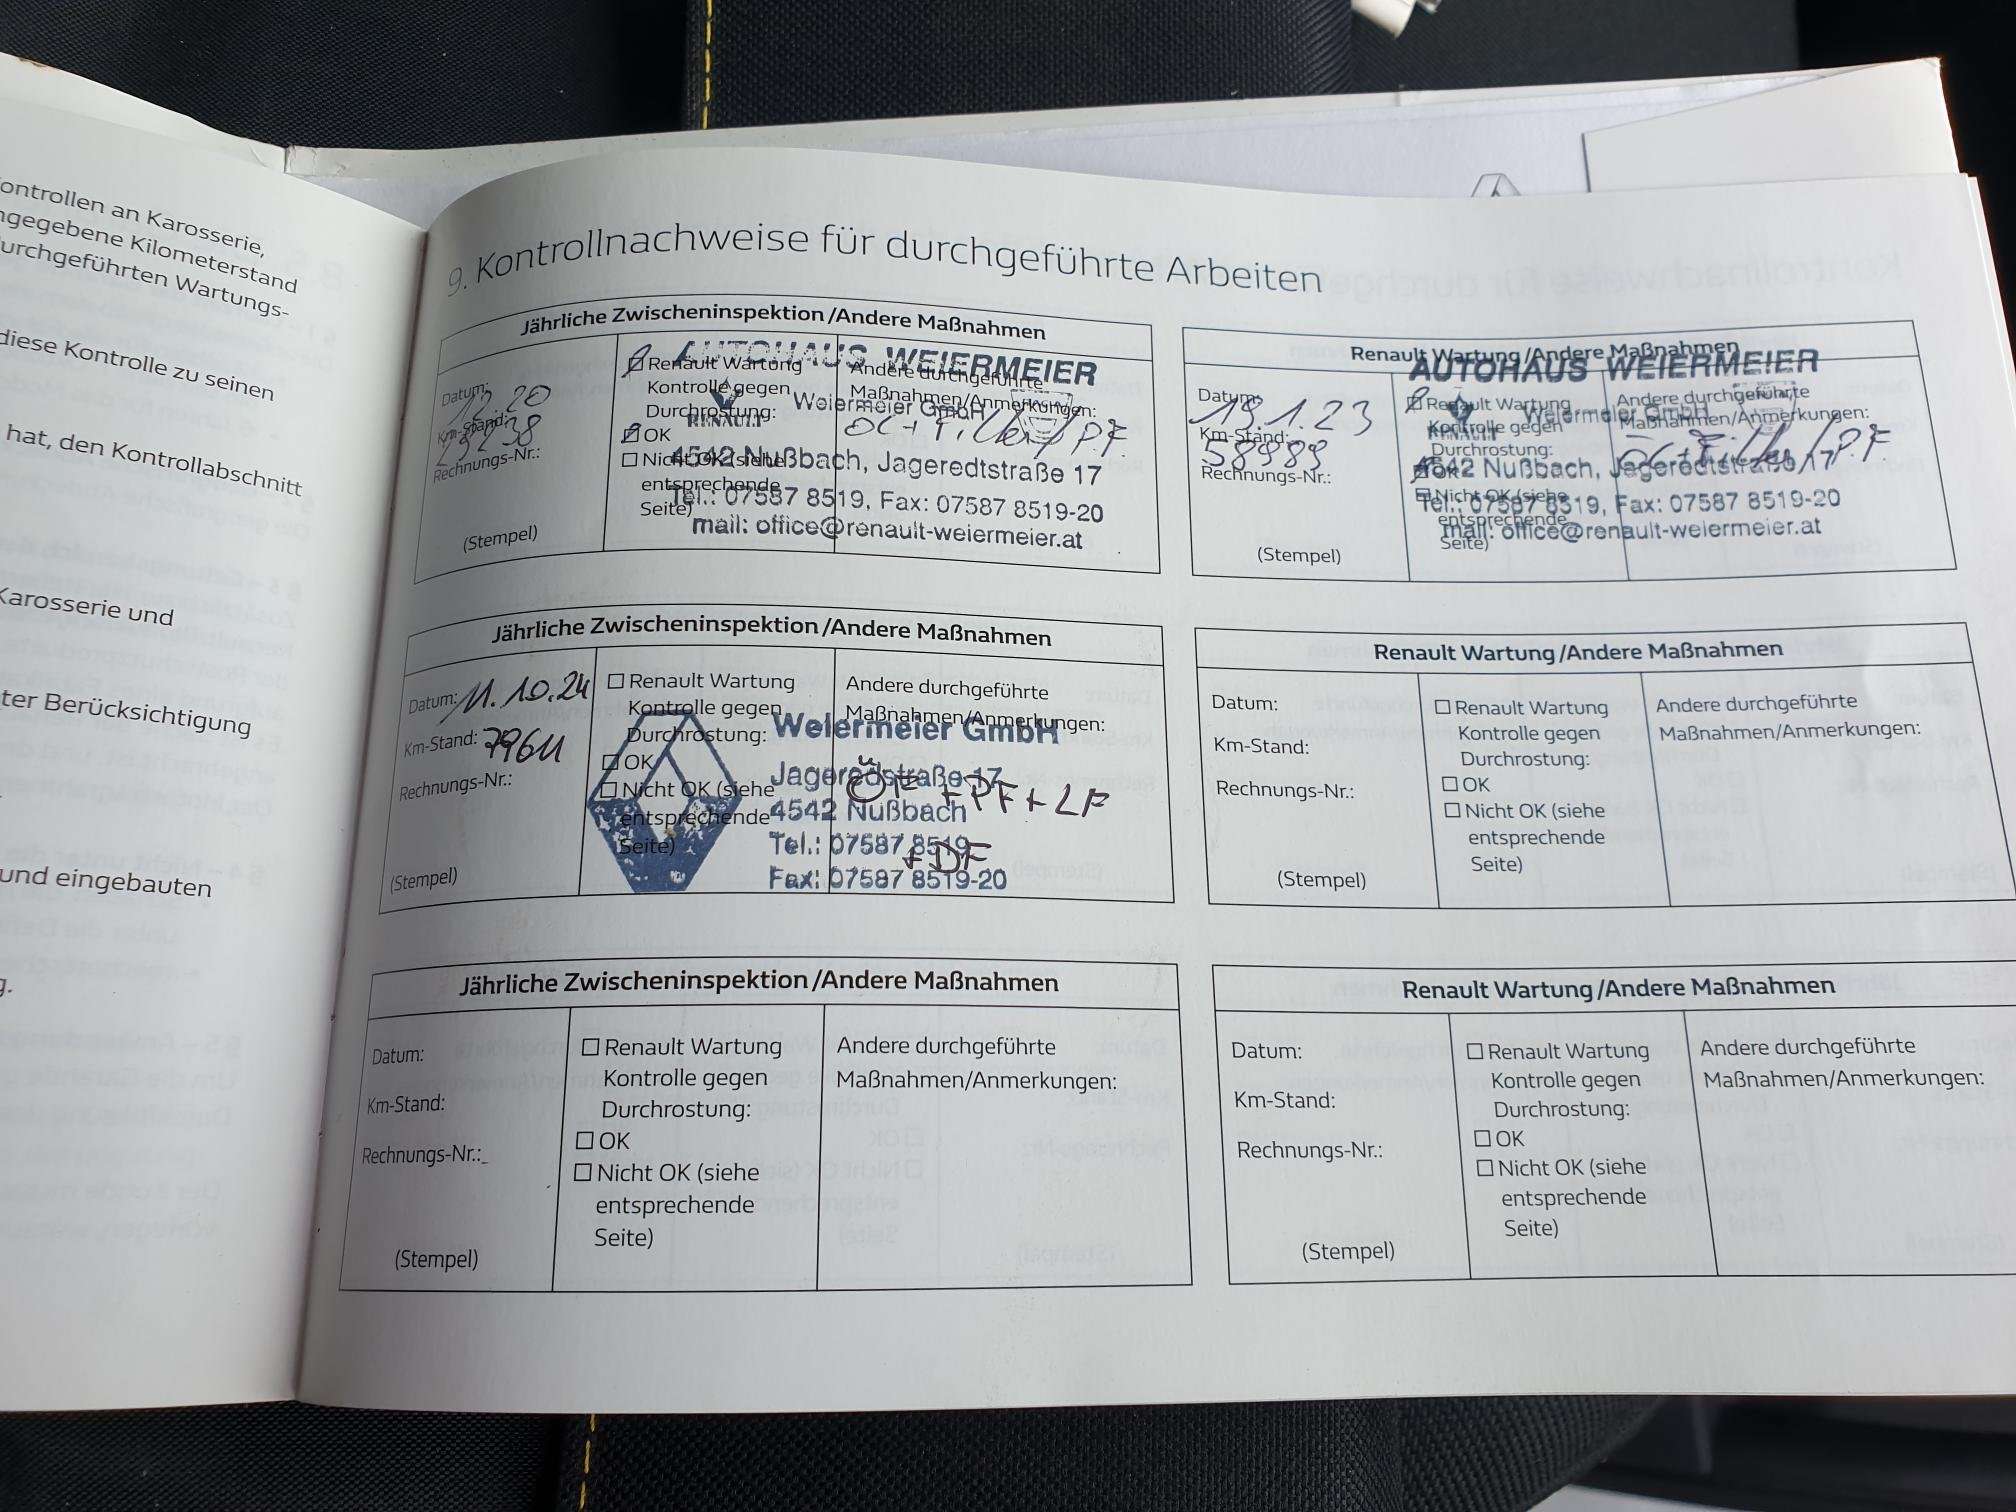 ontrollen an Karosserie,
ngegebene Kilometerstand
urchgeführten Wartungs-
diese Kontrolle zu seinen
hat, den Kontrollabschnitt
Karosserie und
ter Berücksichtigung
und eingebauten
g.
9. Kontrollnachweise für durchgeführte Arbeiten
Jährliche Zwischeninspektion/Andere Maßnahmen
Datum:
Km-Stand:
Rechnungs-Nr.:
(Stempel)
Renault Wartung
Kontrolle gegen
Durchrostung:
OK
Nicht OK (siehe
entsprechende
Seite)
Andere durchgeführte
Maßnahmen/Anmerkungen:
AUTOHAUS WEIERMEIER
Weiermeier GmbH
RENAULT
4542 Nußbach, Jageredtstraße 17
Tel.: 07587 8519, Fax: 07587 8519-20
mail: office@renault-weiermeier.at
Renault Wartung/Andere Maßnahmen
Datum: 19.1.23
Km-Stand: 58989
Rechnungs-Nr.:
(Stempel)
Renault Wartung
Kontrolle gegen
Durchrostung:
OK
Nicht OK (siehe
entsprechende
Seite)
Andere durchgeführte
Maßnahmen/Anmerkungen:
AUTOHAUS WEIERMEIER
Weiermeier GmbH
RENAULT
4542 Nußbach, Jageredtstraße 17
Tel.: 07587 8519, Fax: 07587 8519-20
mail: office@renault-weiermeier.at
Jährliche Zwischeninspektion/Andere Maßnahmen
Datum: 11.10.24
Km-Stand: 79611
Rechnungs-Nr.:
(Stempel)
Renault Wartung
Kontrolle gegen
Durchrostung:
OK
Nicht OK (siehe
entsprechende
Seite)
Andere durchgeführte
Maßnahmen/Anmerkungen:
+PF+LF
+DF
Weiermeier GmbH
Jageredstraße 17
4542 Nußbach
Tel.: 07587 8519
Fax: 07587 8519-20
Renault Wartung/Andere Maßnahmen
Datum:
Km-Stand:
Rechnungs-Nr.:
(Stempel)
Renault Wartung
Kontrolle gegen
Durchrostung:
OK
Nicht OK (siehe
entsprechende
Seite)
Andere durchgeführte
Maßnahmen/Anmerkungen:
Jährliche Zwischeninspektion/Andere Maßnahmen
Datum:
Km-Stand:
Rechnungs-Nr.:
(Stempel)
Renault Wartung
Kontrolle gegen
Durchrostung:
OK
Nicht OK (siehe
entsprechende
Seite)
Andere durchgeführte
Maßnahmen/Anmerkungen:
Renault Wartung/Andere Maßnahmen
Datum:
Km-Stand:
Rechnungs-Nr.:
(Stempel)
Renault Wartung
Kontrolle gegen
Durchrostung:
OK
Nicht OK (siehe
entsprechende
Seite)
Andere durchgeführte
Maßnahmen/Anmerkungen: